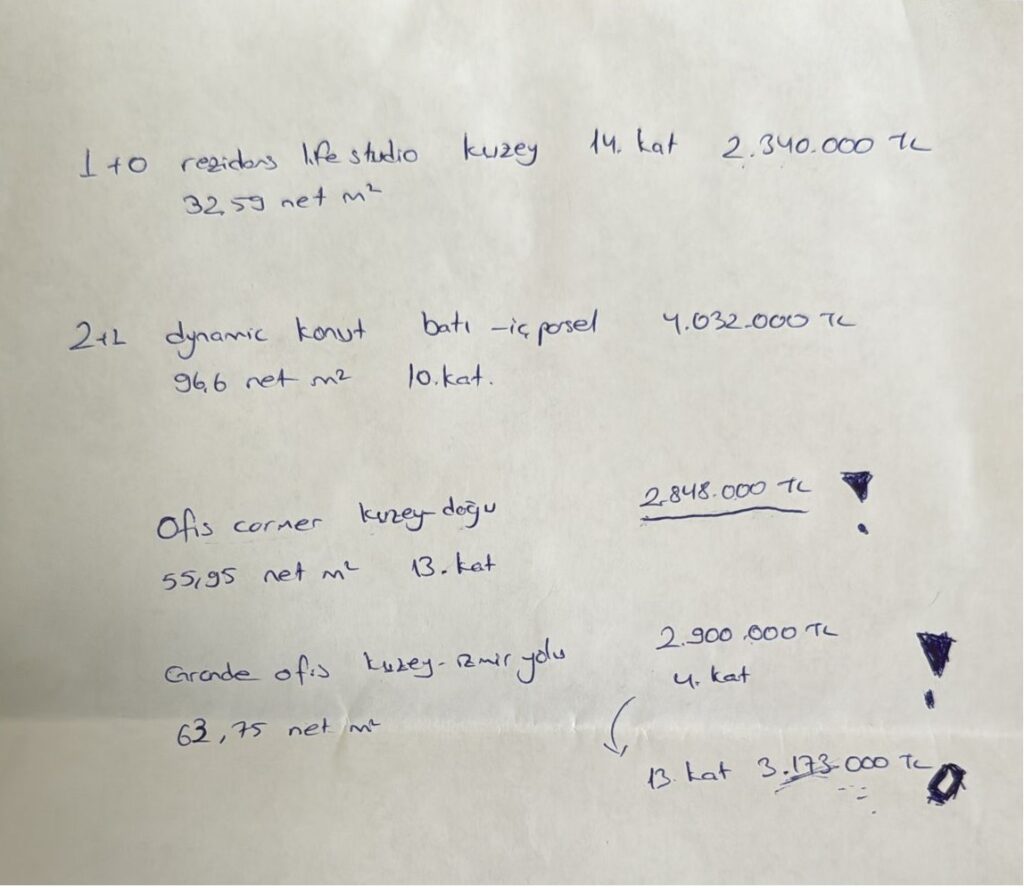 1+0 rezidans life studio kuzey 14. kat 2.340.000 TL
32,59 net m²
2+1 dynamic konut batı - iç parsel 4.032.000 TL
96,6 net m² 10.kat.
Ofis corner kuzey-doğu 2.848.000 TL !
55,95 net m² 13. kat
Grande ofis kuzey-izmir yolu 2.900.000 TL !
4. kat
63,75 net m²
13. kat 3.173.000 TL